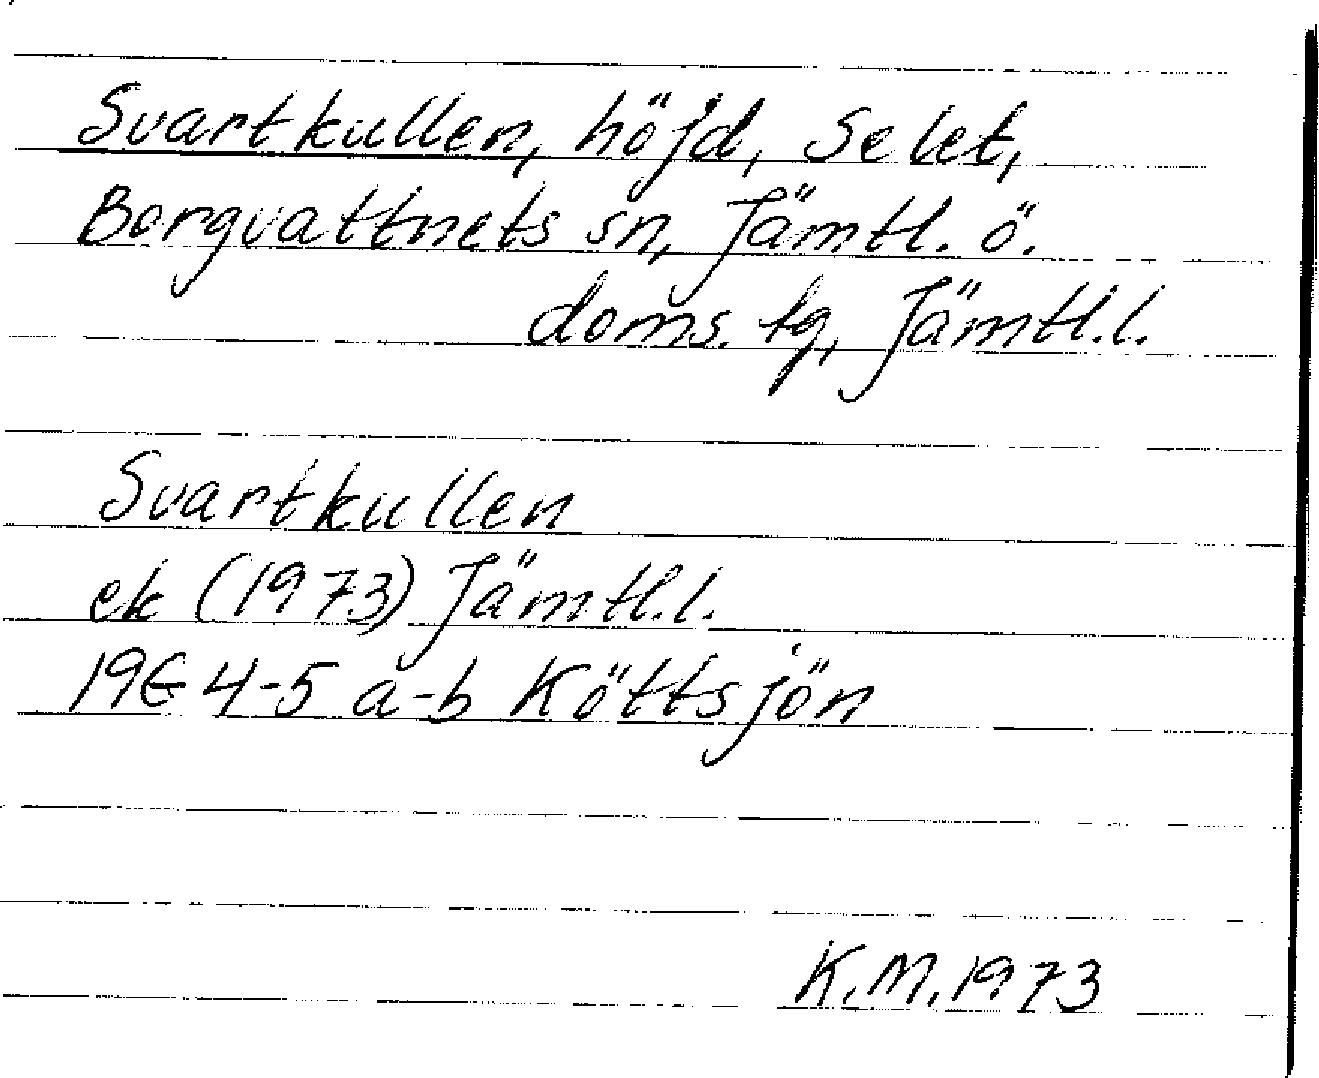 Svartkullen, höjd, Selet,
Borgvattnets sn, Jämtl. ö.
doms. tg, Jämtl.l.
Svartkullen
ek (1973) Jämtl.l.
19E 4-5 a-b Köttsjön
K.M. 1973